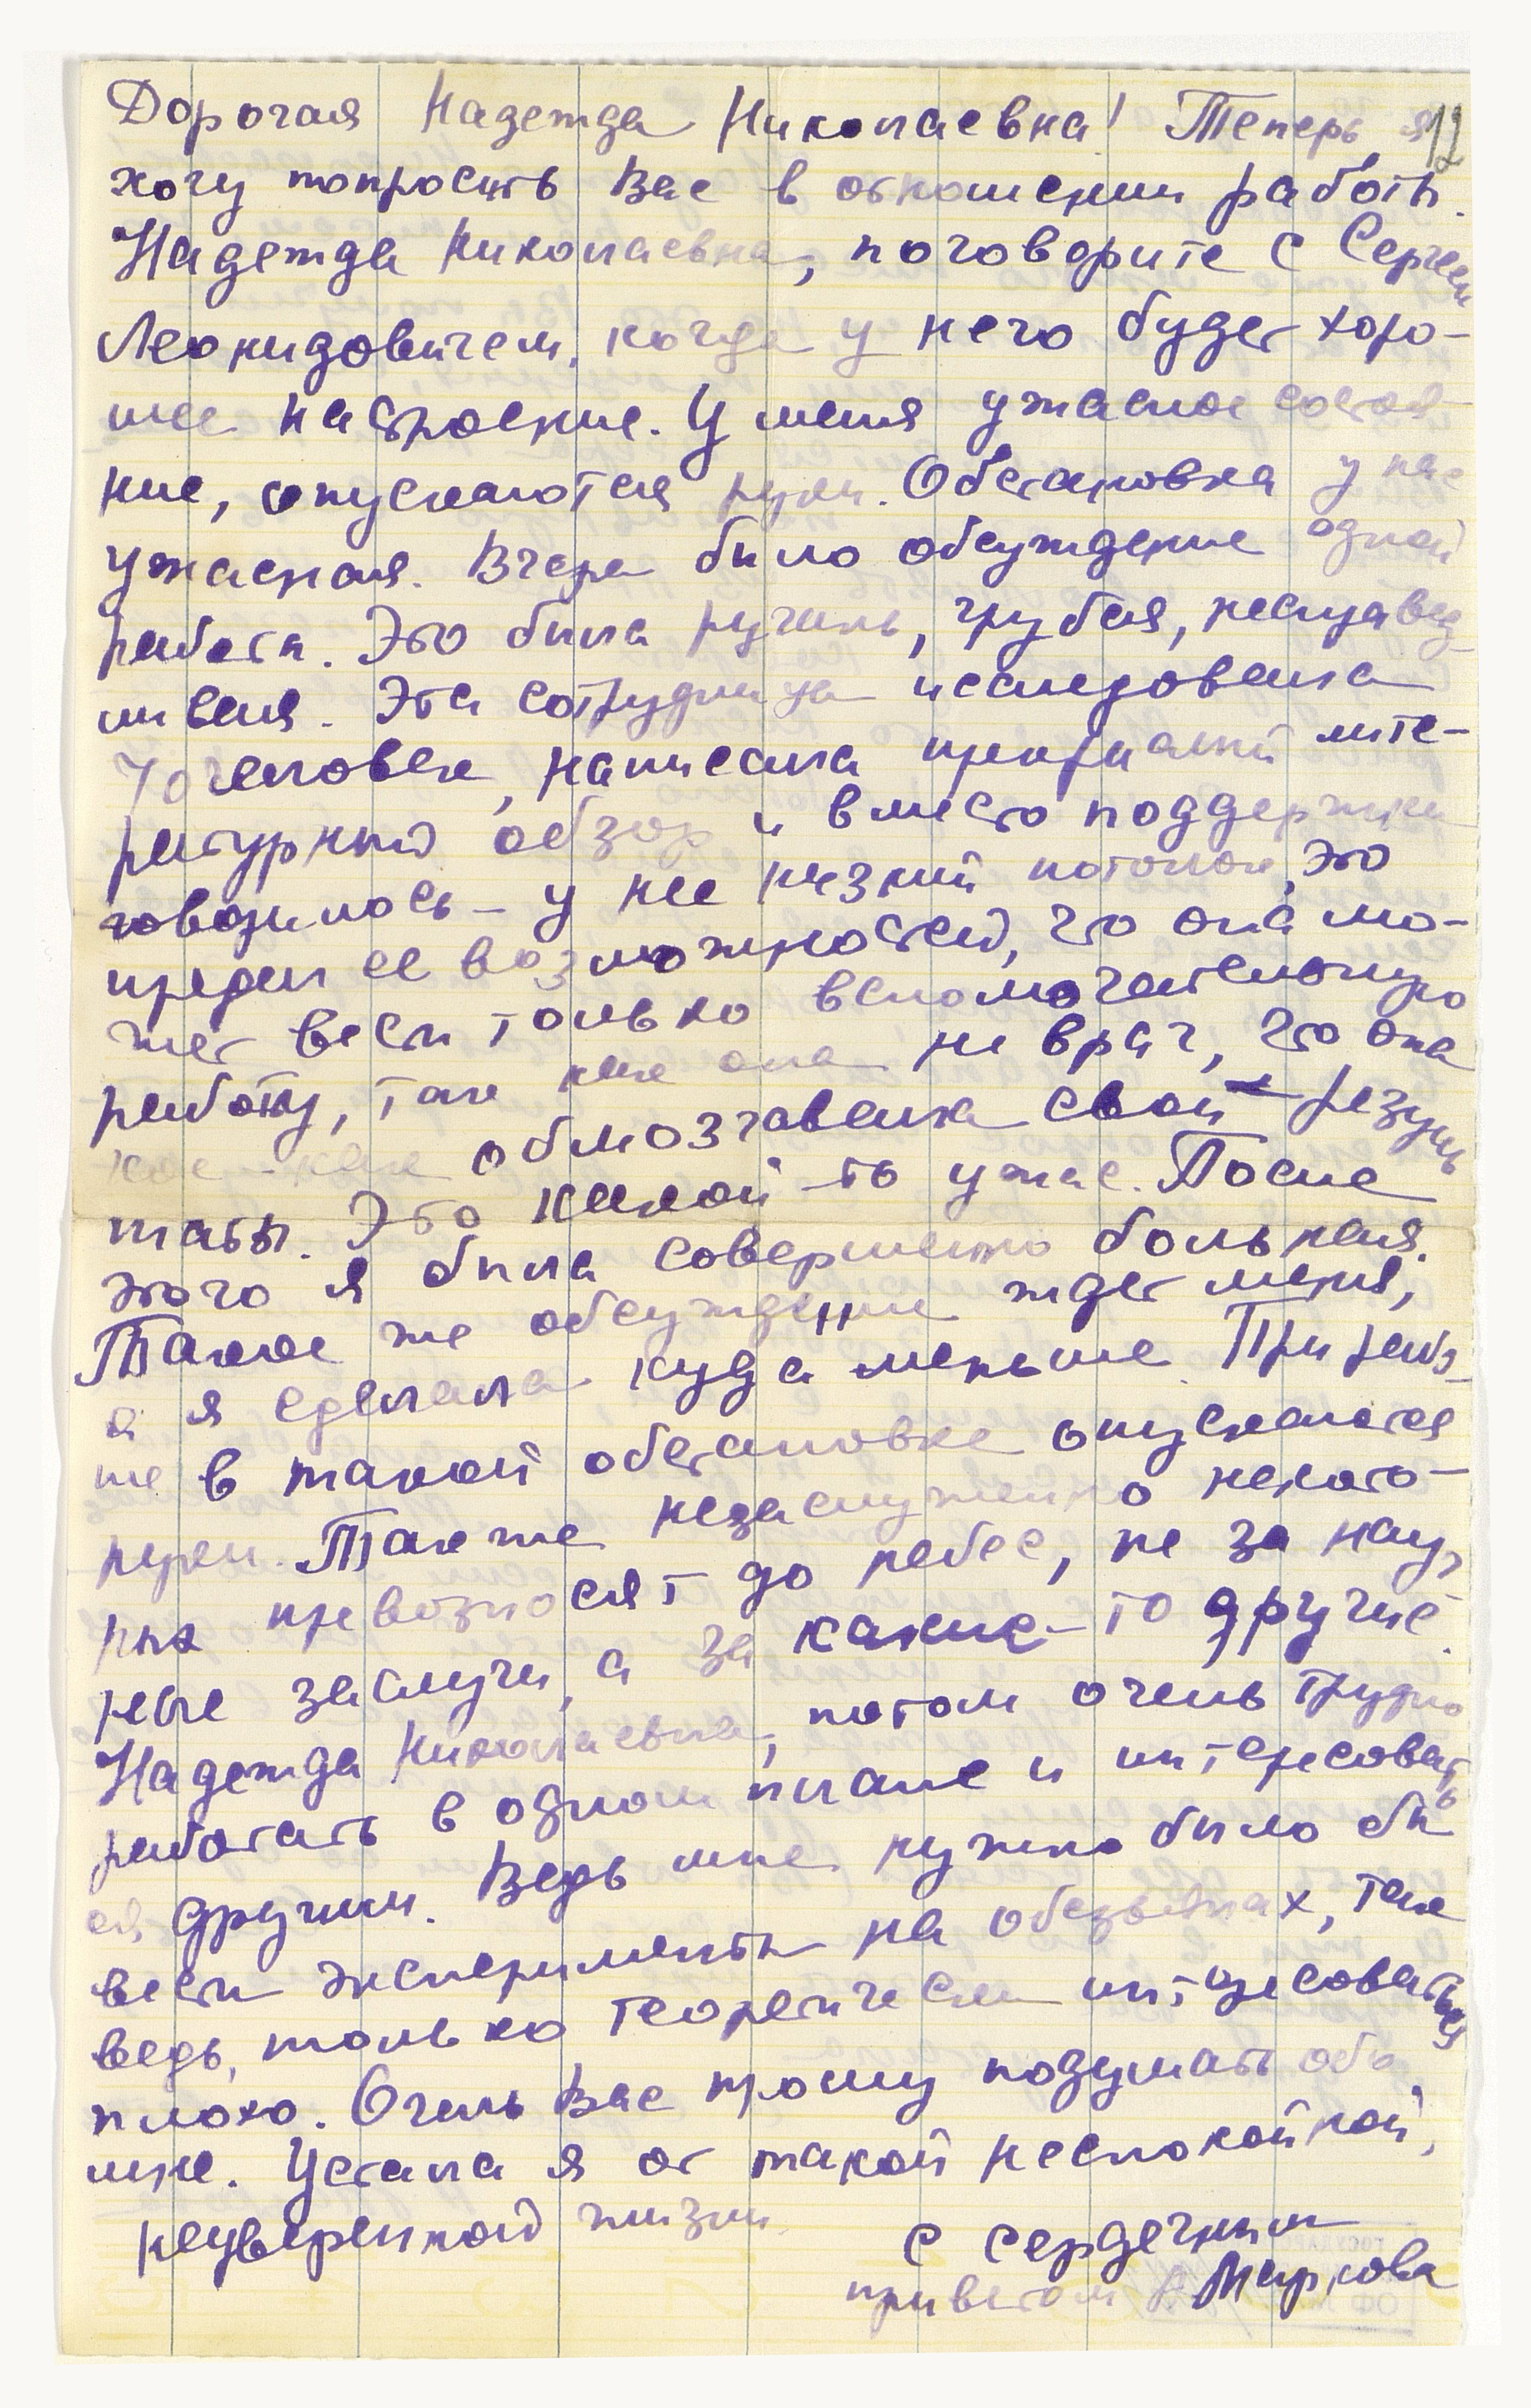 Дорогая Надежда Николаевна! Теперь я 12
хочу попросить Вас в отношении работы.
Надежда Николаевна, поговорите с Сергеем
Леонидовичем, когда у него будет хоро-
шее настроение. У меня ужасное состоя-
ние, опускаются руки. Обстановка у нас
ужасная. Вчера было обсуждение одной
работы. Это была ругань, грубая, несправед-
ливая. Эта сотрудница исследовала
70 человек, написала прекрасный лите-
ратурный обзор и вместо поддержки
говорилось – у нее низкий потолок, это
предел ее возможностей, что она мо-
жет вести только вспомогательную
работу, так как она не врач, что она
кое-как обмозговала свои резуль-
таты. Это какой-то ужас. После
этого я была совершенно больная.
Такое же обсуждение ждет меня,
а я сделала куда меньше. При рабо-
те в такой обстановке опускаются
руки. Так же незаслуженно некото-
рых превозносят до небес, не за науч-
ные заслуги, а за какие-то другие.
Надежда Николаевна, потом очень трудно
работать в одном плане и интересовать
ся другим. Ведь мне нужно было бы
вести эксперименты на обезьянах, так
ведь, только теоретически интересоваться
плохо. Очень Вас прошу подумать обо
мне. Устала я от такой неспокойной,
неуверенной жизни.
С сердечным
приветом Маркова